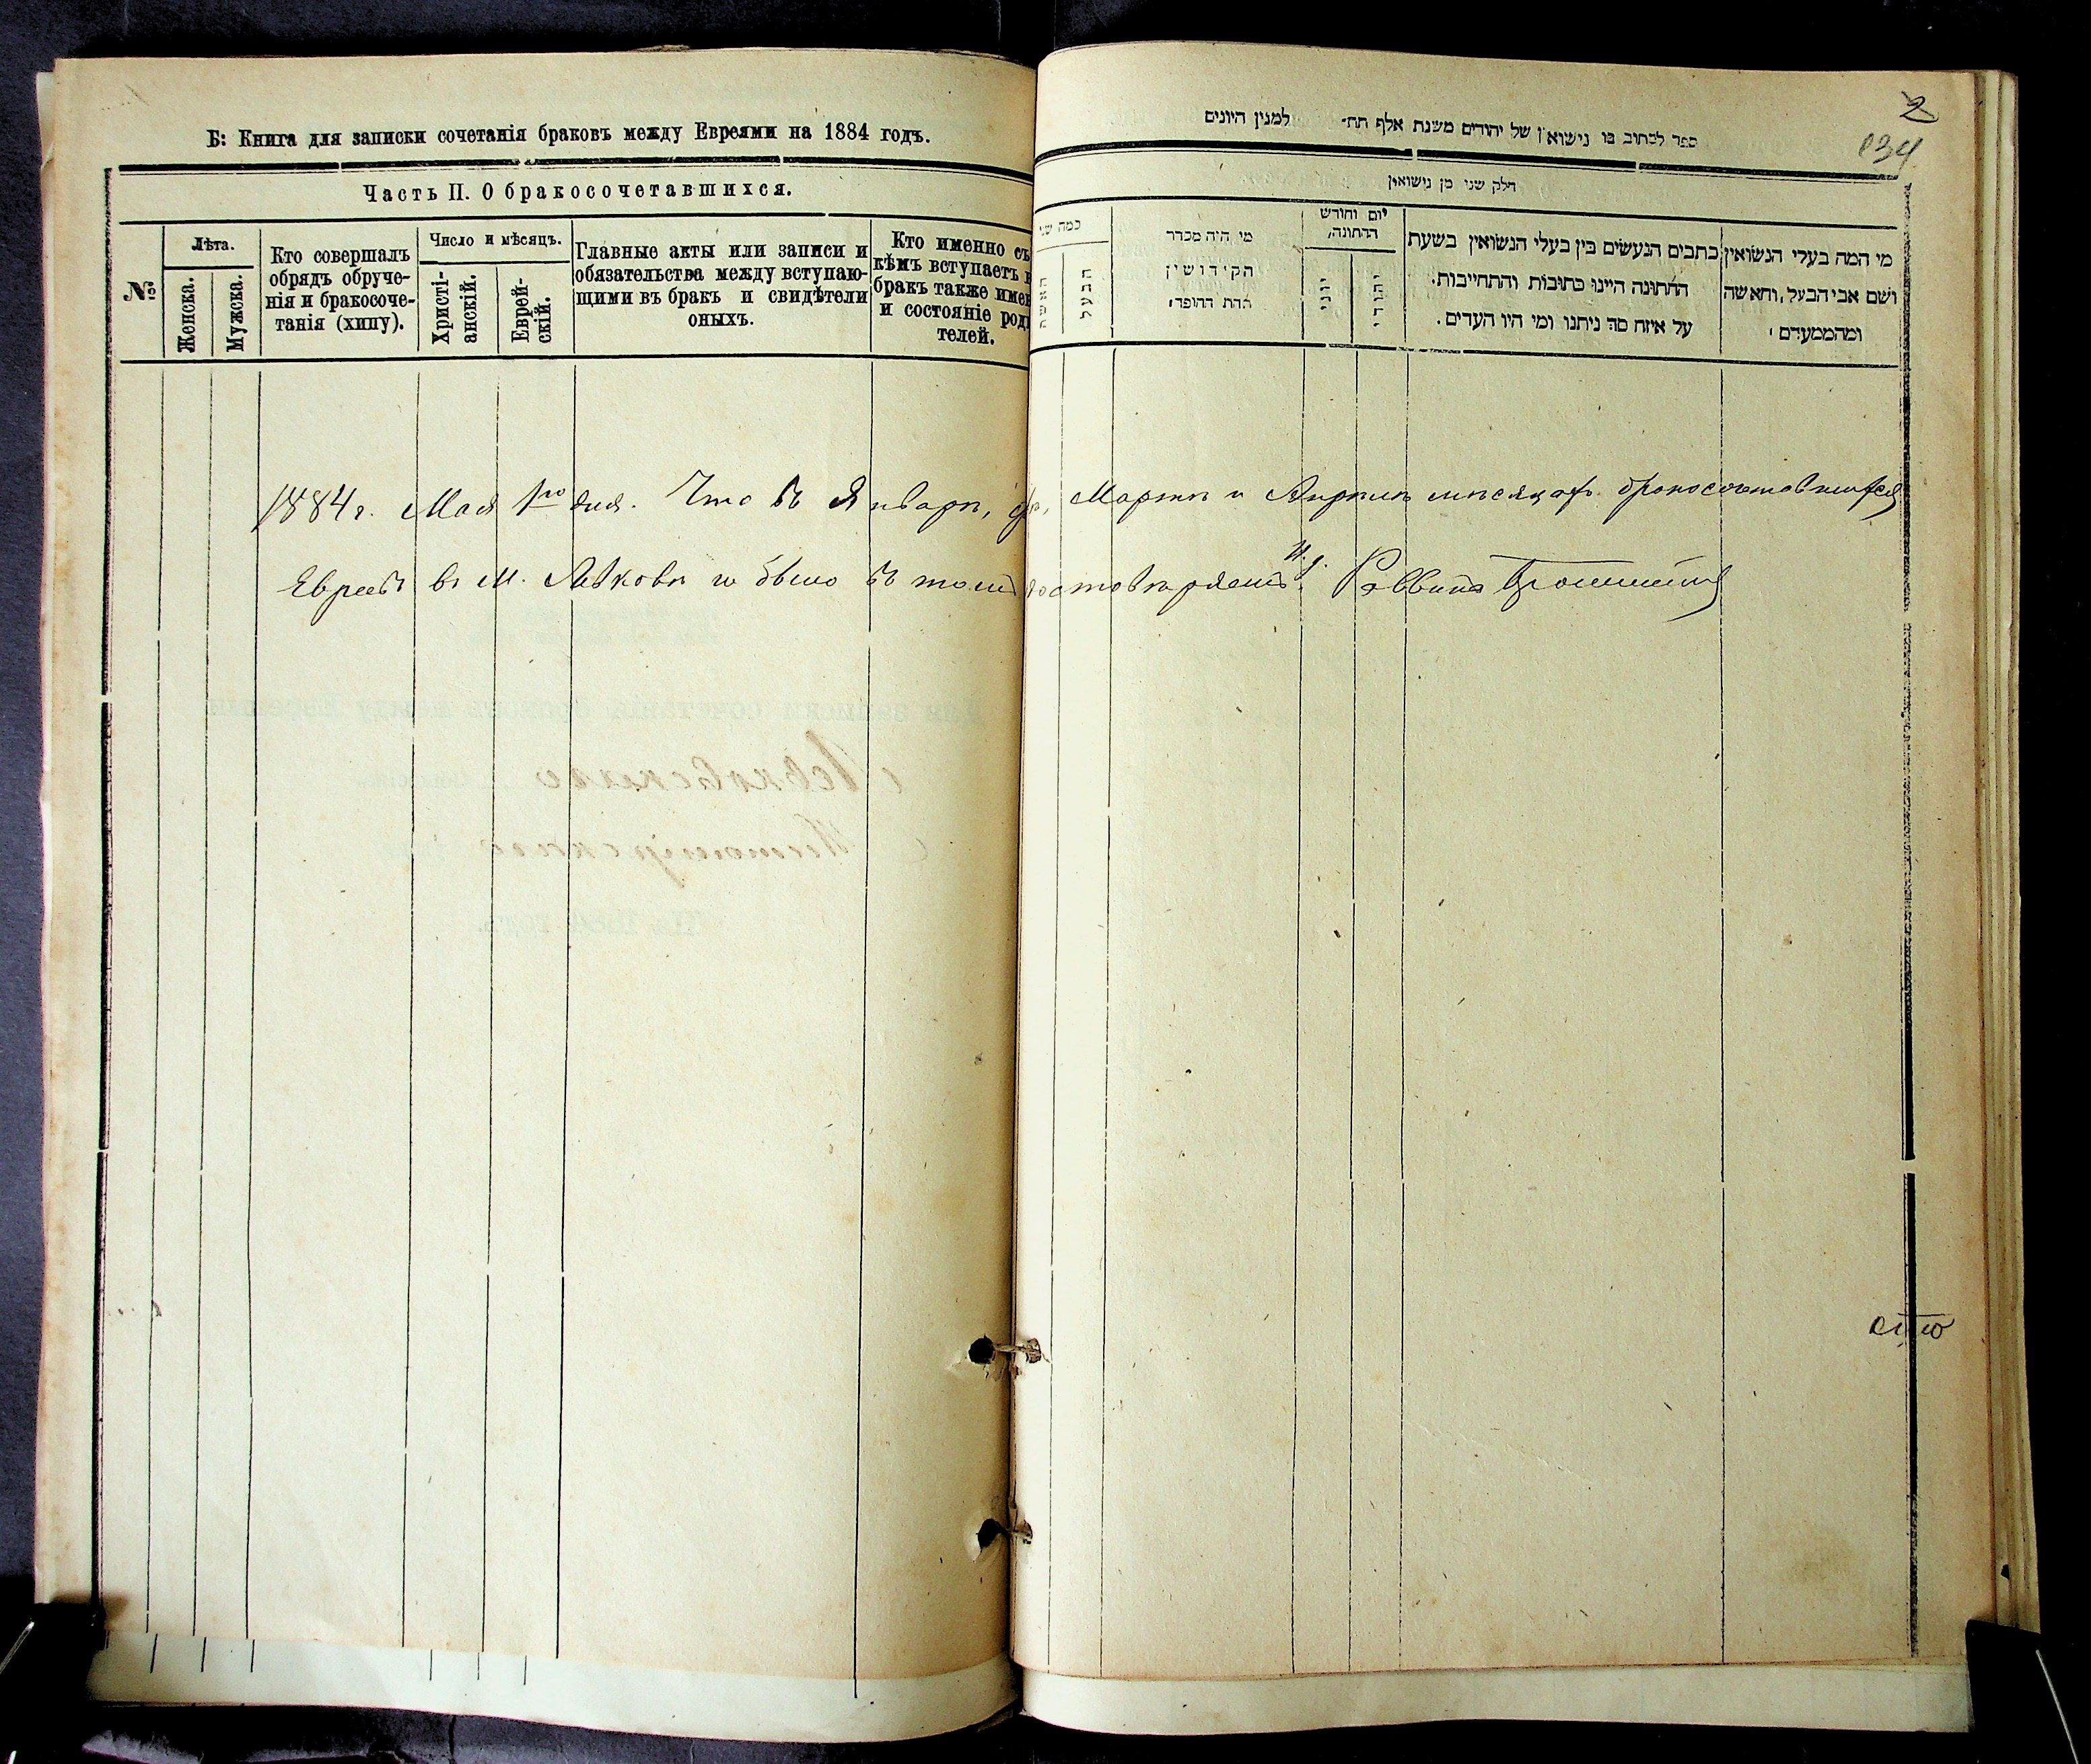 Б: Книга для записки сочетанія браковъ между Евреями на 1884 годъ.
Часть II. О бракосочетавшихся.
№
Лѣта.
Женска.
Мужска.
Кто совершалъ
обрядъ обруче-
нія и бракосоче-
танія (хипу).
Число и мѣсяцъ.
Христі-
анскій.
Еврей-
скій.
Главные акты или записи и
обязательства между вступаю-
щими въ бракъ и свидѣтели
оныхъ.
Кто именно съ
кѣмъ вступаетъ в
бракъ также имен
и состояніе род
телей.
2
134
ספר לכתוב בו נישואין של יהודים משנת אלף תת״ למנין היונים
חלק שני מן נישואין
כמה שני
האשה
הבעל
מי היה מסדר
הקידושין
הדת החופה׃
יום וחודש
החתונה,
יוני
יהודי
כתבים הנעשים בין בעלי הנשואין בשעת
החתונה היינו כתובות והתחייבות.
על איזה סך ניתנו ומי היו העדים.
מי המה בעלי הנשואין
ושם אבי הבעל, והאשה
ומהממעדם
1884 г. Мая 1го дня. Что въ Январѣ, Мартѣ и Апрѣлѣ мѣсяцах бракосочетавшихся
Евреевъ в м. Левковѣ не было въ томъ удостовѣряетъ И. д. Раввина